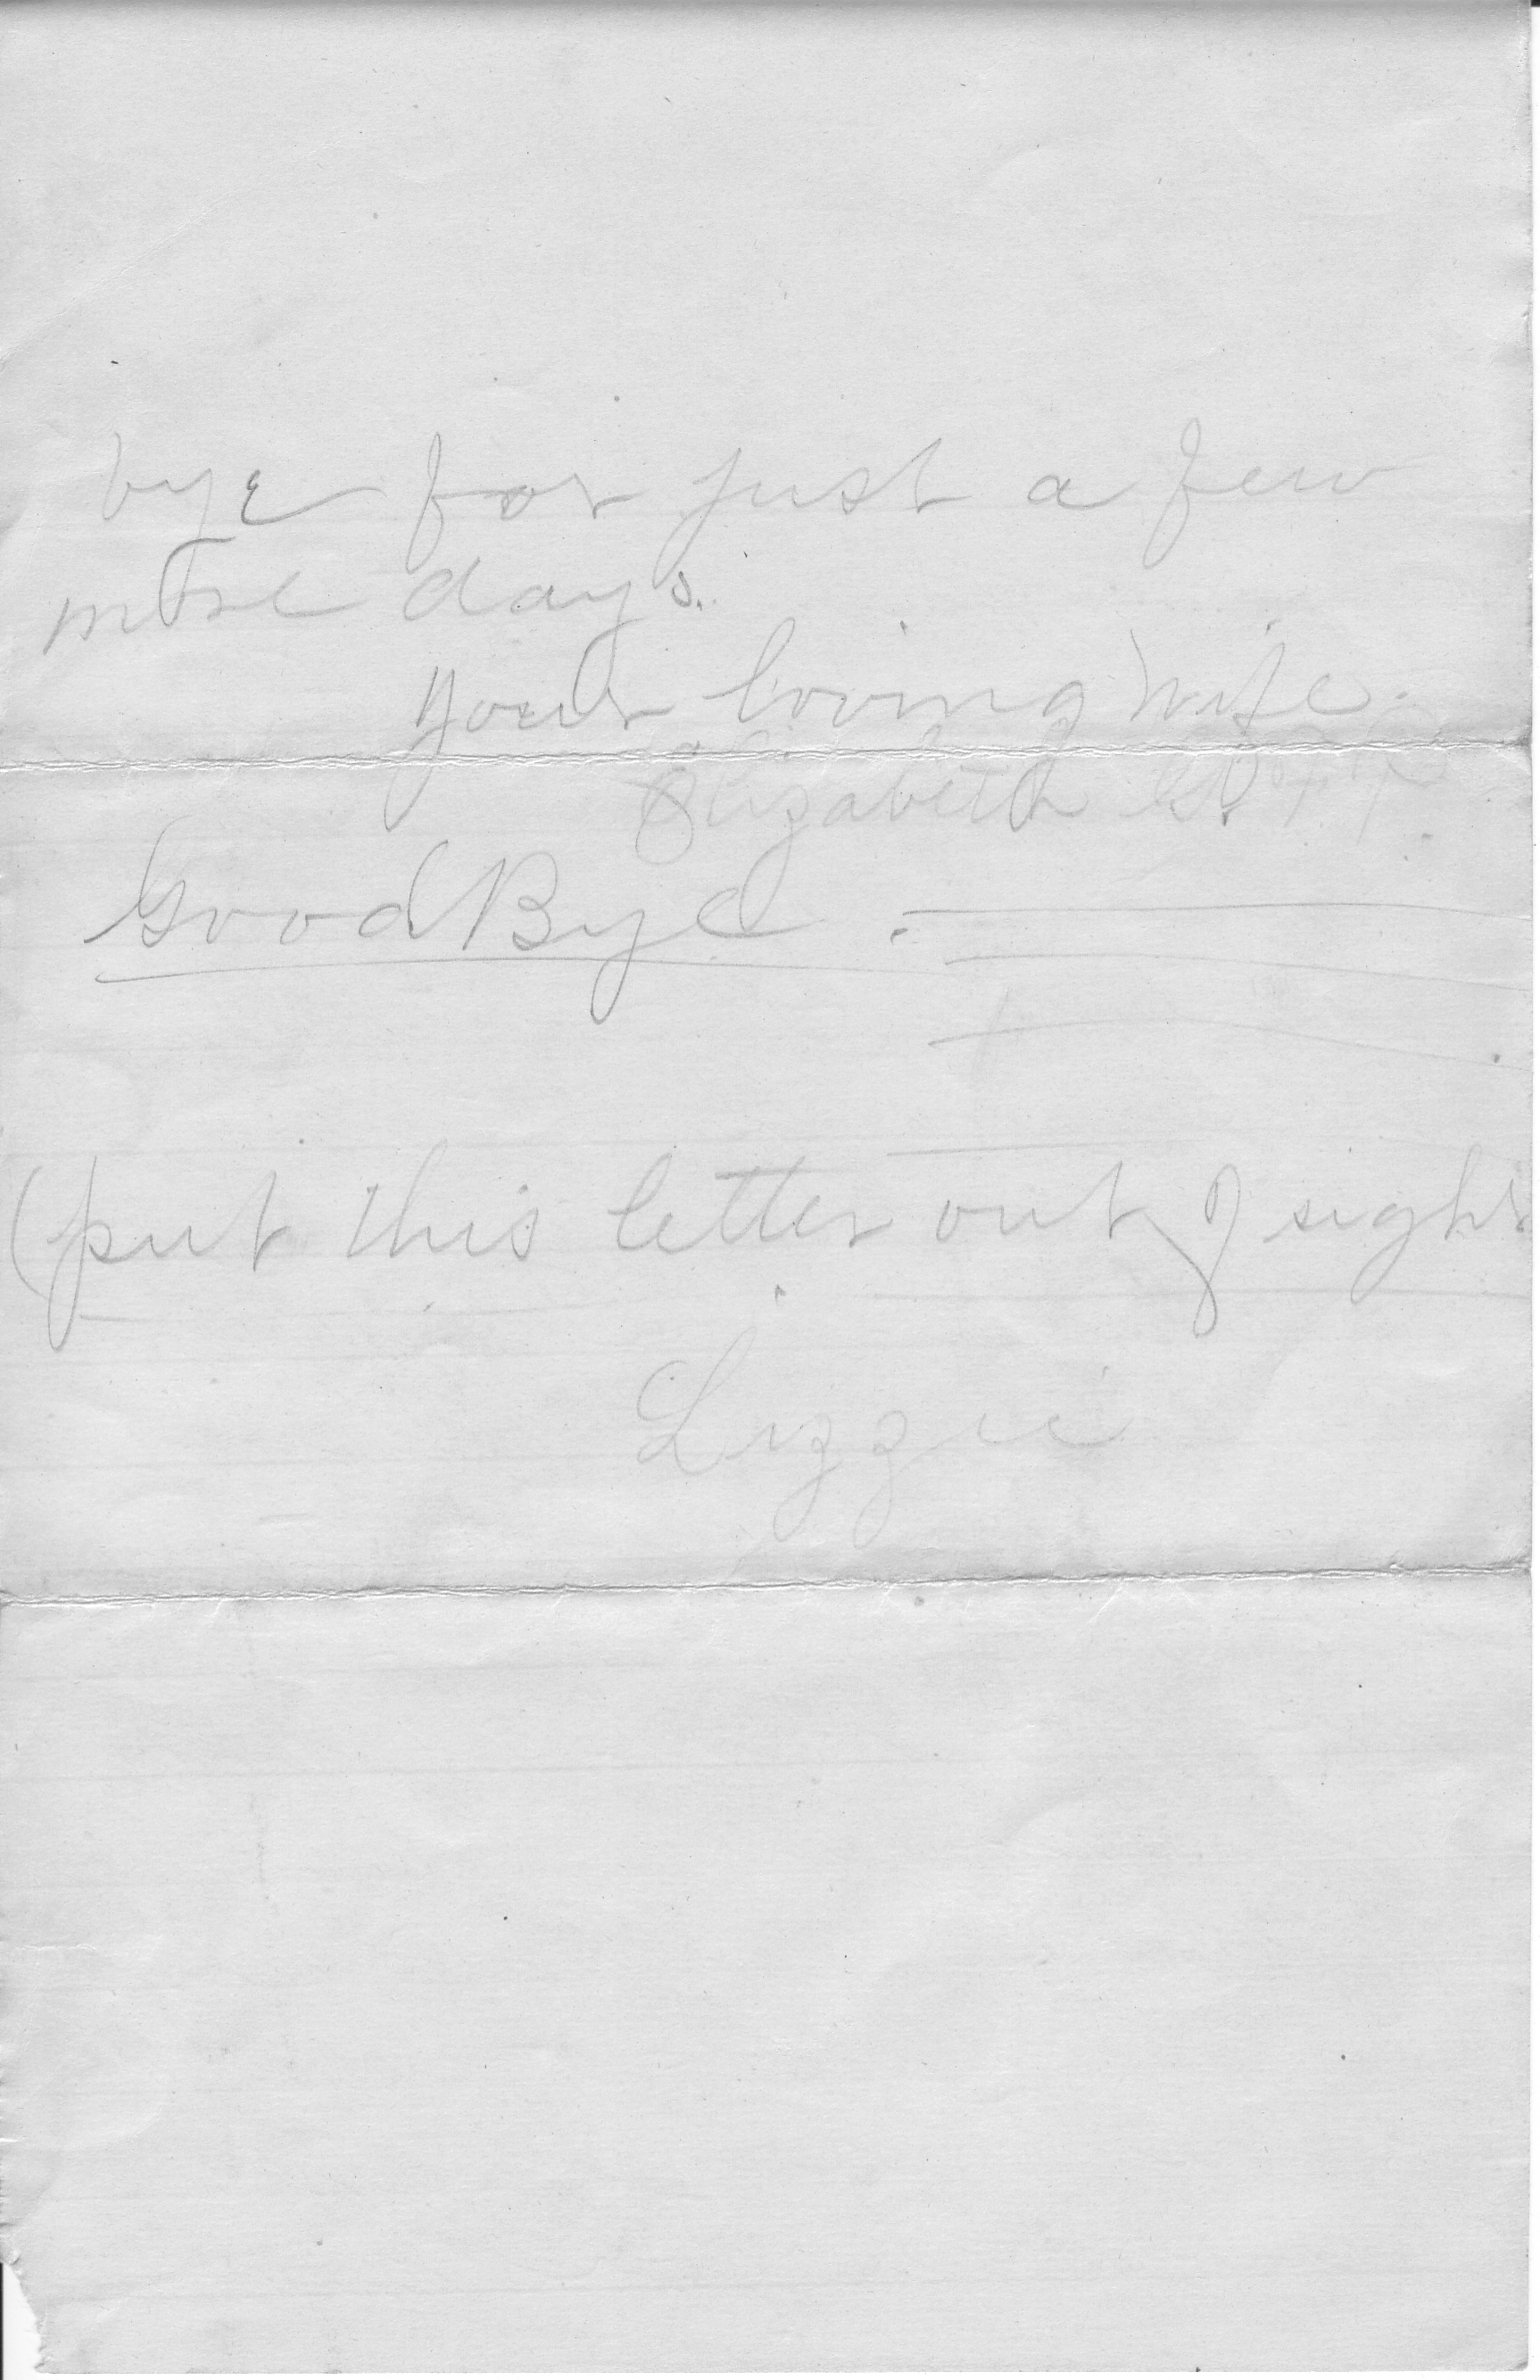 bye for just a few
more days.
your loving wife.
Elizabeth
Good Bye.
(put this letter out of sight
Lizzie